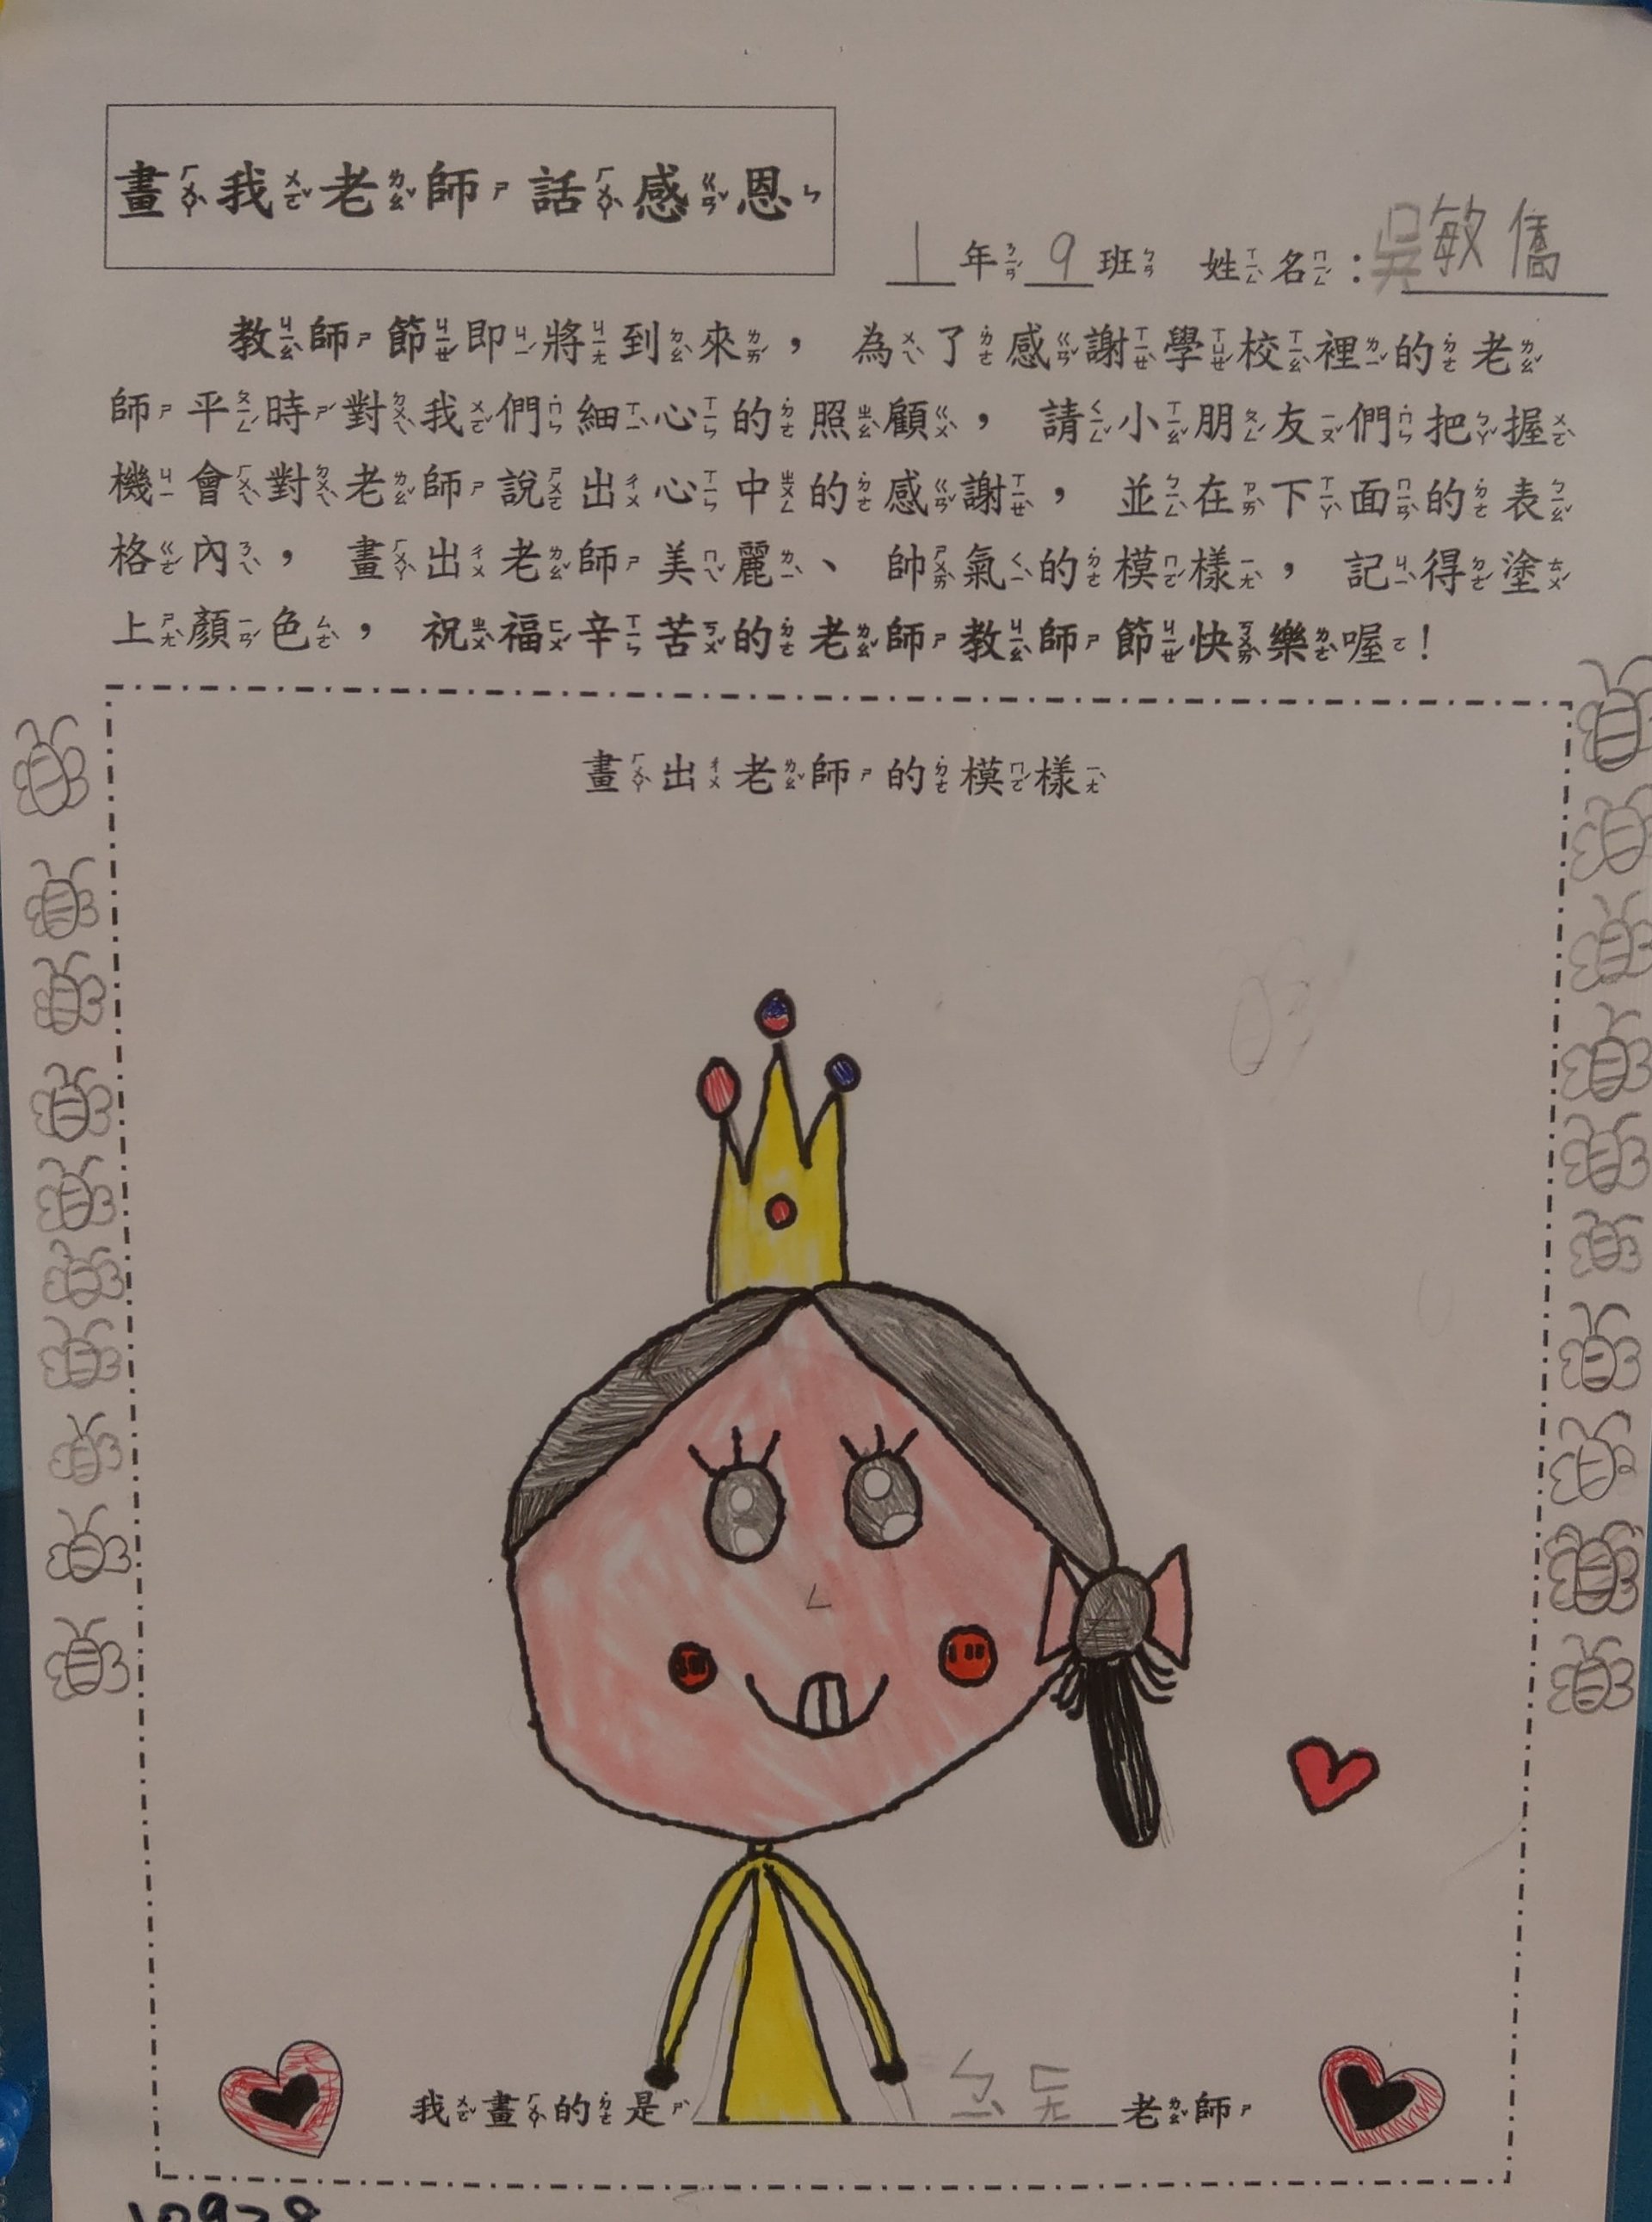 畫我老師 話感恩
1年9班 姓名：吳敏僑
教師節即將到來，為了感謝學校裡的老
師平時對我們細心的照顧，請小朋友們把握
機會對老師說出心中的感謝，並在下面的表
格內，畫出老師美麗、帥氣的模樣，記得塗
上顏色，祝福辛苦的老師教師節快樂喔！
畫出老師的模樣
我畫的是 老師